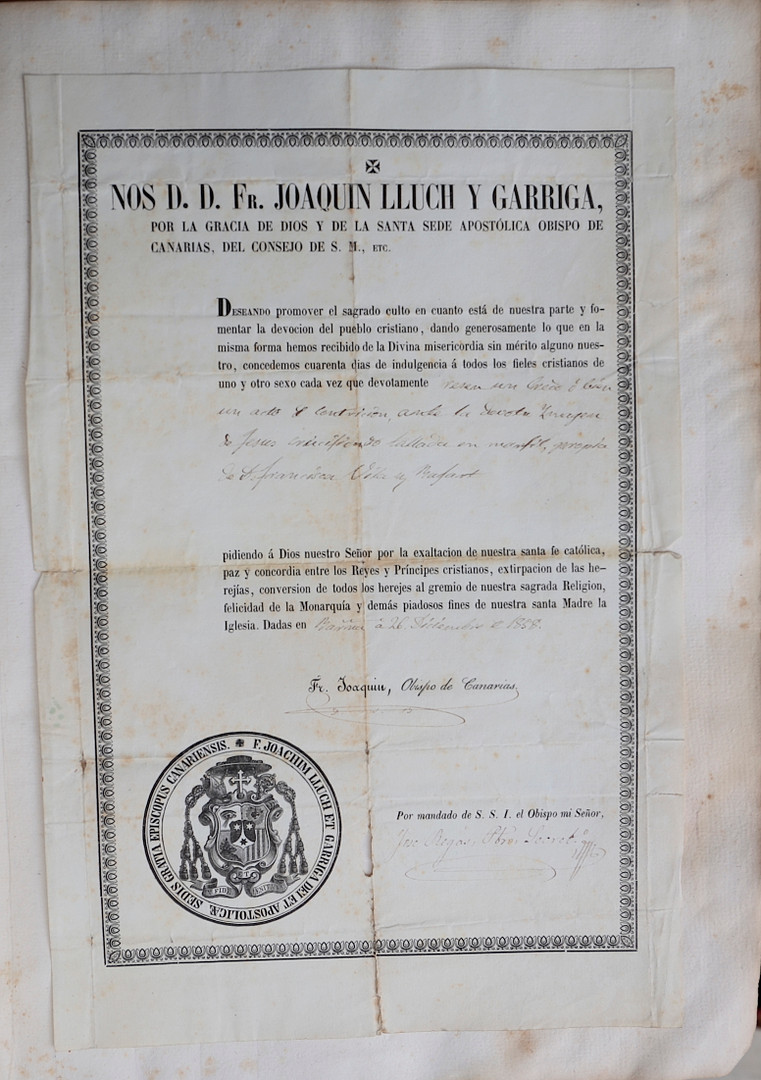 NOS D. D. Fr. JOAQUIN LLUCH Y GARRIGA,
POR LA GRACIA DE DIOS Y DE LA SANTA SEDE APOSTÓLICA OBISPO DE
CANARIAS, DEL CONSEJO DE S. M., ETC.
DESEANDO promover el sagrado culto en cuanto está de nuestra parte y fo-
mentar la devocion del pueblo cristiano, dando generosamente lo que en la
misma forma hemos recibido de la Divina misericordia sin mérito alguno nues-
tro, concedemos cuarenta dias de indulgencia á todos los fieles cristianos de
uno y otro sexo cada vez que devotamente resen un Credo ó bien
un acto de contricion, ante la devota Imagen
de Jesus crucificado tallada en marfil, propia
de D.ª Francisca y Rafart
pidiendo á Dios nuestro Señor por la exaltacion de nuestra santa fe católica,
paz y concordia entre los Reyes y Príncipes cristianos, extirpacion de las he-
rejías, conversion de todos los herejes al gremio de nuestra sagrada Religion,
felicidad de la Monarquía y demás piadosos fines de nuestra santa Madre la
Iglesia. Dadas en á 26 Diciembre de 1858.
Fr. Joaquin, Obispo de Canarias.
F. JOACHIM LLUCH ET GARRIGA DEI ET APOSTOLICÆ SEDIS GRATIA EPISCOPUS CANARIENSIS.
Por mandado de S. S. I. el Obispo mi Señor,
Pbro. Secret.º